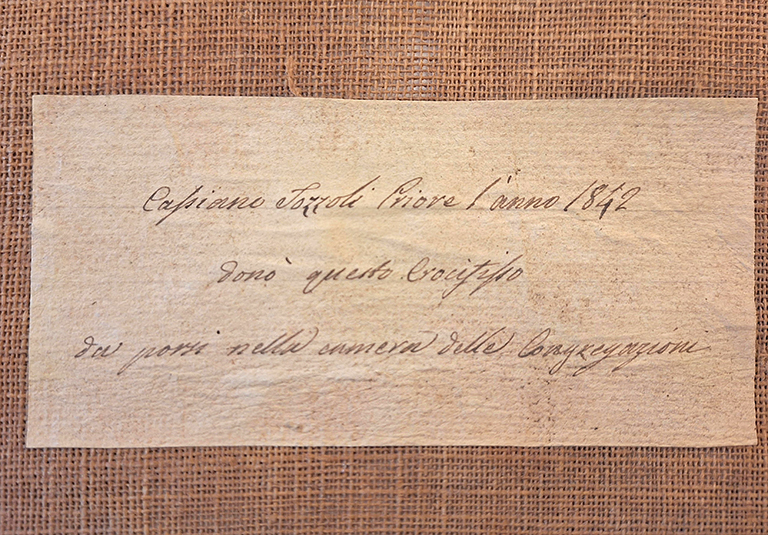 Cassiano Tozzoli Priore l'anno 1842
donò questo Crocifisso
da porsi nella camera delle Congregazioni